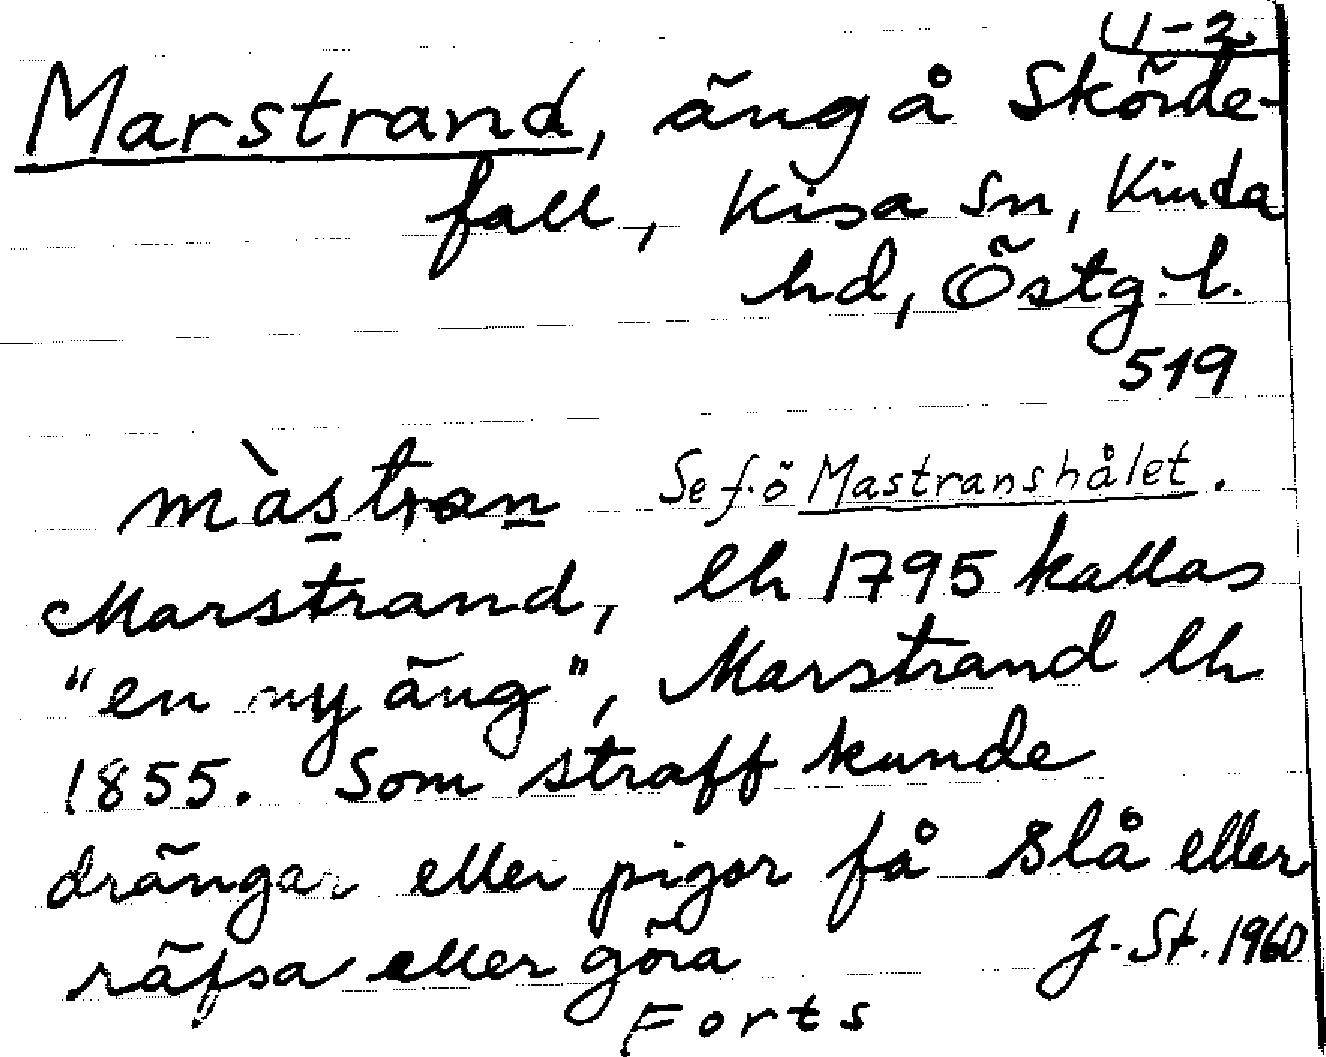 4-2
Marstrand, äng å Skörde-
fall, Kisa sn, Kinda
hd, Östg. l.
519
màstran Se f.ö Mastranshålet.
Marstrand, lh 1795 kallas
"en ny äng", Marstrand lh
1855. Som straff kunde
drängar eller pigor få slå eller
räfsa eller göra J. St. 1960
Forts